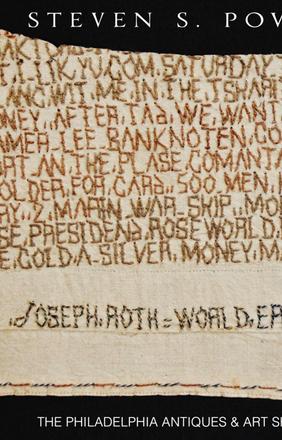 STEVEN S. POW
YOM, SATURDAY,
WIT, ME, IN, THE, TSHAR
NEY, AFTER, TAd, WE, WANT
MER, LEE, BANK, NOTEN, CO
ART, AN, THE, PLASE, COMANTA
OLDER, FOR, CARd,, 500, MEN,
2, MARIN, WAR_SKIP, MO
SE, PRESIDENd, ROSE, WORLD,
E, GOLD, A-SILVER, MONEY, M
JOSEPH, ROTH = WORLD, EA
THE PHILADELPHIA ANTIQUES & ART S